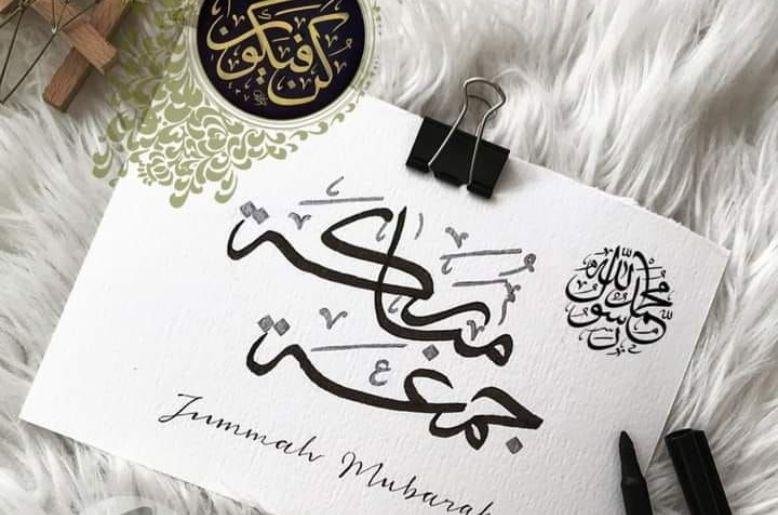 كن فيكون
مباركة
جمعة
محمد رسول الله
Jummah Mubarak